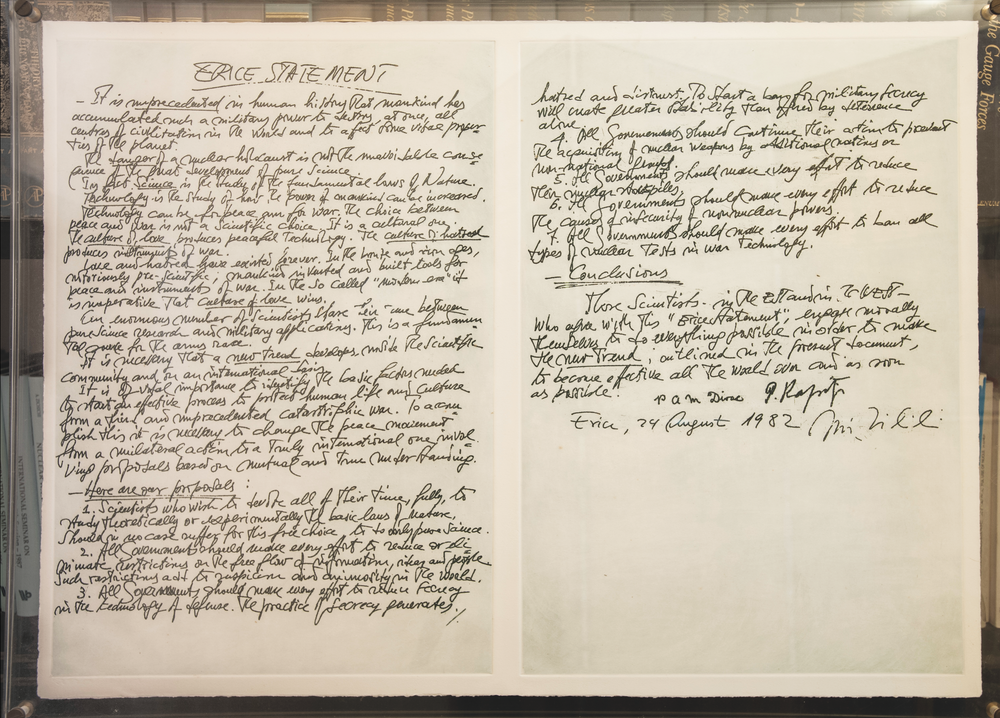 ERICE STATEMENT
- It is unprecedented in human history that mankind has
accumulated such a military power to destroy, at once, all
centres of civilization in the World and to affect some vital proper-
ties of the planet.
The danger of a nuclear holocaust is not the unavoidable conse
quence of the great development of pure Science.
In fact Science is the study of the fundamental laws of Nature.
Technology is the study of how the power of mankind can be increased.
Technology can be for peace and for war. The choice between
peace and war is not a Scientific choice. It is a cultural one:
the culture of love produces peaceful Technology. The culture of hatred
produces instruments of war.
Love and hatred have existed forever. In the bronze and iron ages,
notoriously pre-Scientific, mankind invented and built tools for
peace and instruments of war. In the so called "modern era" it
is imperative that culture of love wins.
An enormous number of scientists share their time between
pure science research and military applications. This is a fundamen
tal source for the arms race.
It is necessary that a new trend develops, inside the Scientific
community and on an international basis.
It is of vital importance to identify the basic factors needed
to start an effective process to protect human life and culture
from a third and unprecedented catastrophic war. To accom
plish this it is necessary to change the peace movement
from a unilateral action to a truly international one invol
ving proposals based on mutual and true understanding.
- Here are our proposals:
1. Scientists who wish to devote all of their time, fully, to
study theoretically or experimentally the basic laws of nature,
should in no case suffer for this free choice to do only pure Science.
2. All Governments should make every effort to reduce or eli
minate restrictions on the free flow of information, ideas and people.
Such restrictions add to suspicion and animosity in the World.
3. All Governments should make every effort to reduce Secrecy
in the technology of defense. The practice of Secrecy generates
hatred and distrust. To start a ban for military Secrecy
will create greater stability than offered by deterrence
alone.
4. All Governments should continue their action to prevent
the acquisition of nuclear weapons by additional nations or
non-national groups.
5. All Governments should make every effort to reduce
their nuclear stockpiles.
6. All Governments should make every effort to reduce
the causes of insecurity of non nuclear powers.
7. All Governments should make every effort to ban all
types of nuclear Tests in war Technology.
- Conclusions
Those Scientists - in the East and in the West -
who agree with this "Erice Statement", engage morally
themselves to do everything possible in order to make
the new trend, outlined in the present document,
to become effective all the world over and as soon
as possible.
P A M Dirac P. Kapitza
Erice, 24 August 1982
the Gauge Forces
INTERNATIONAL SEMINAR ON